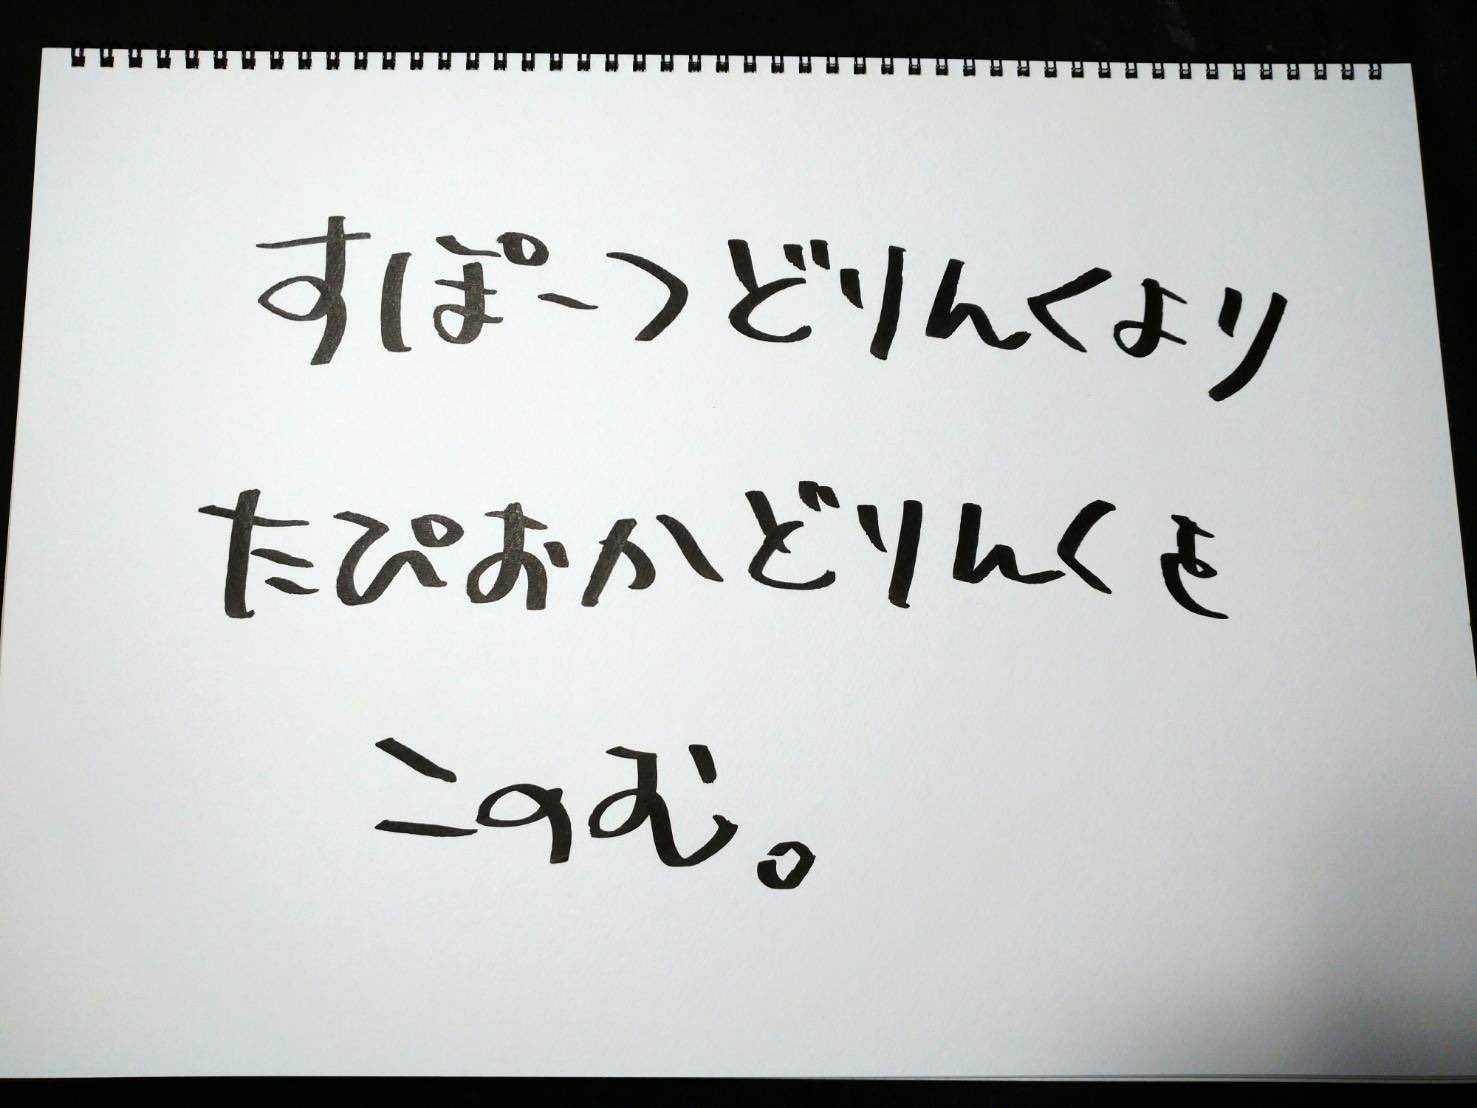 すぽーつどりんくより
たぴおかどりんくを
このむ。